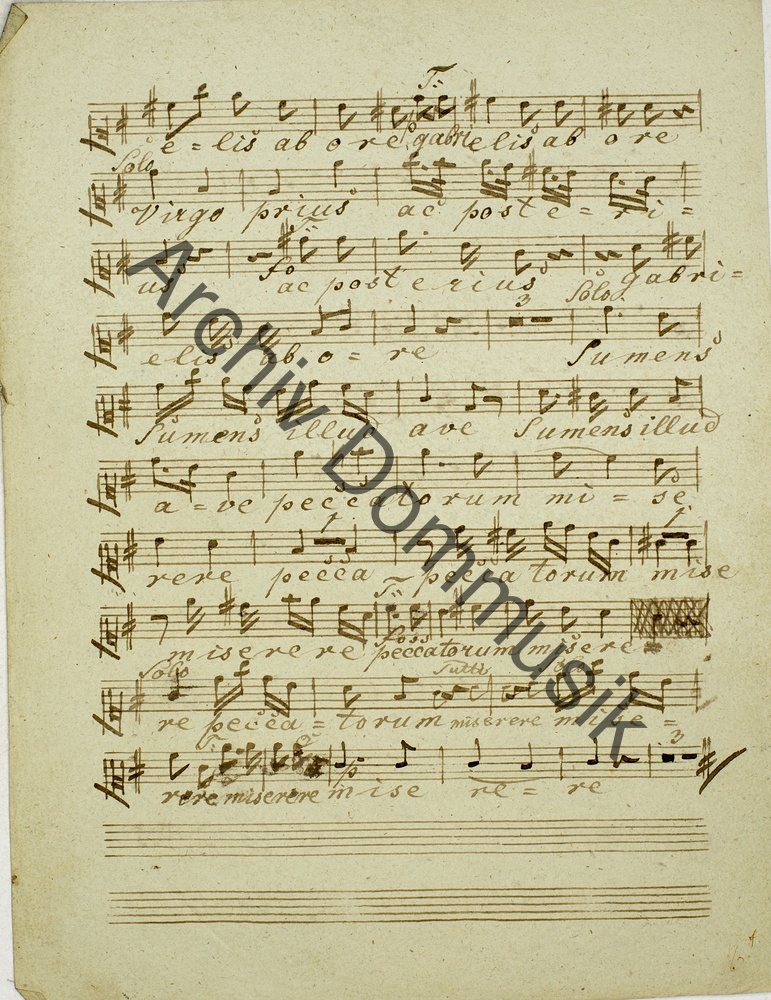 T:
e = lis ab ore gabrielis ab ore
Solo
Virgo prius ac poste = ri =
T:
us fo ac posterius gabri =
Solo
elis ab o = re Sumens
Sumens illud ave Sumens illud
a = ve peccatorum mi = se
1 1
rere pecca = peccatorum mise
T:
foss
miserere peccatorum misere
Solo Tutti
re pecca = torum miserere mise =
p 3
rere miserere mise re = re
3
Archiv Dommusik